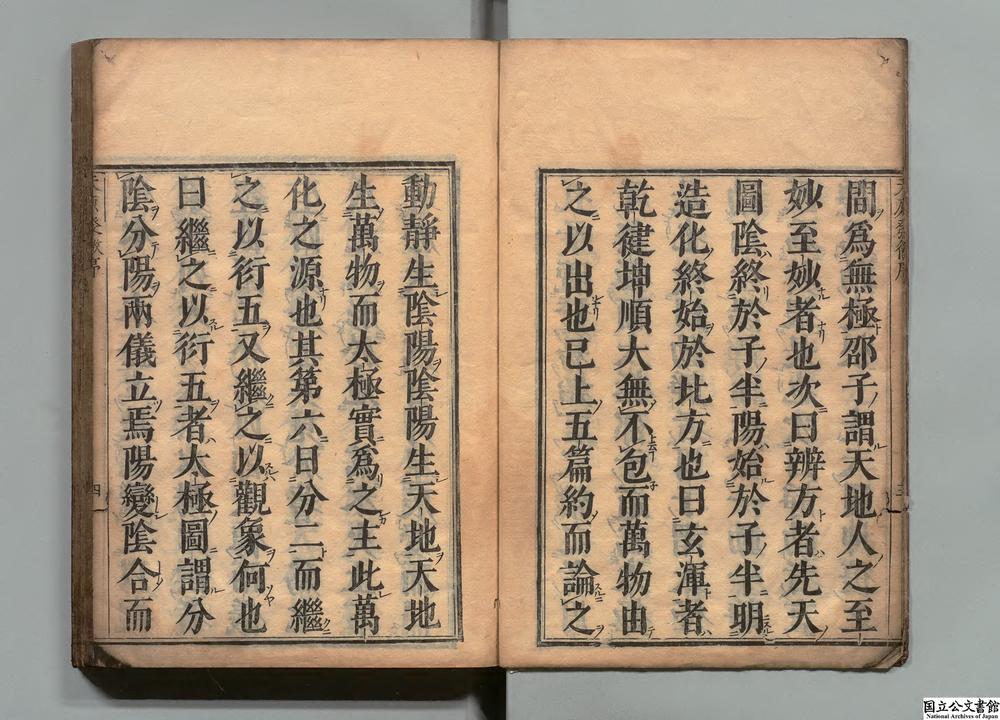 間爲無極邵子謂天地人之至
妙至妙者也次曰辨方者先天
圖陰終於子半陽始於子半明
造化終始於北方也曰玄渾者
乾健坤順大無不包而萬物由
之以出也已上五篇約而論之
動靜生陰陽陰陽生天地天地
生萬物而太極實爲之主此萬
化之源也其第六曰分二而繼
之以衍五又繼之以觀象何也
曰繼之以衍五者太極圖謂分
陰分陽兩儀立焉陽變陰合而
四
国立公文書館
National Archives of Japan